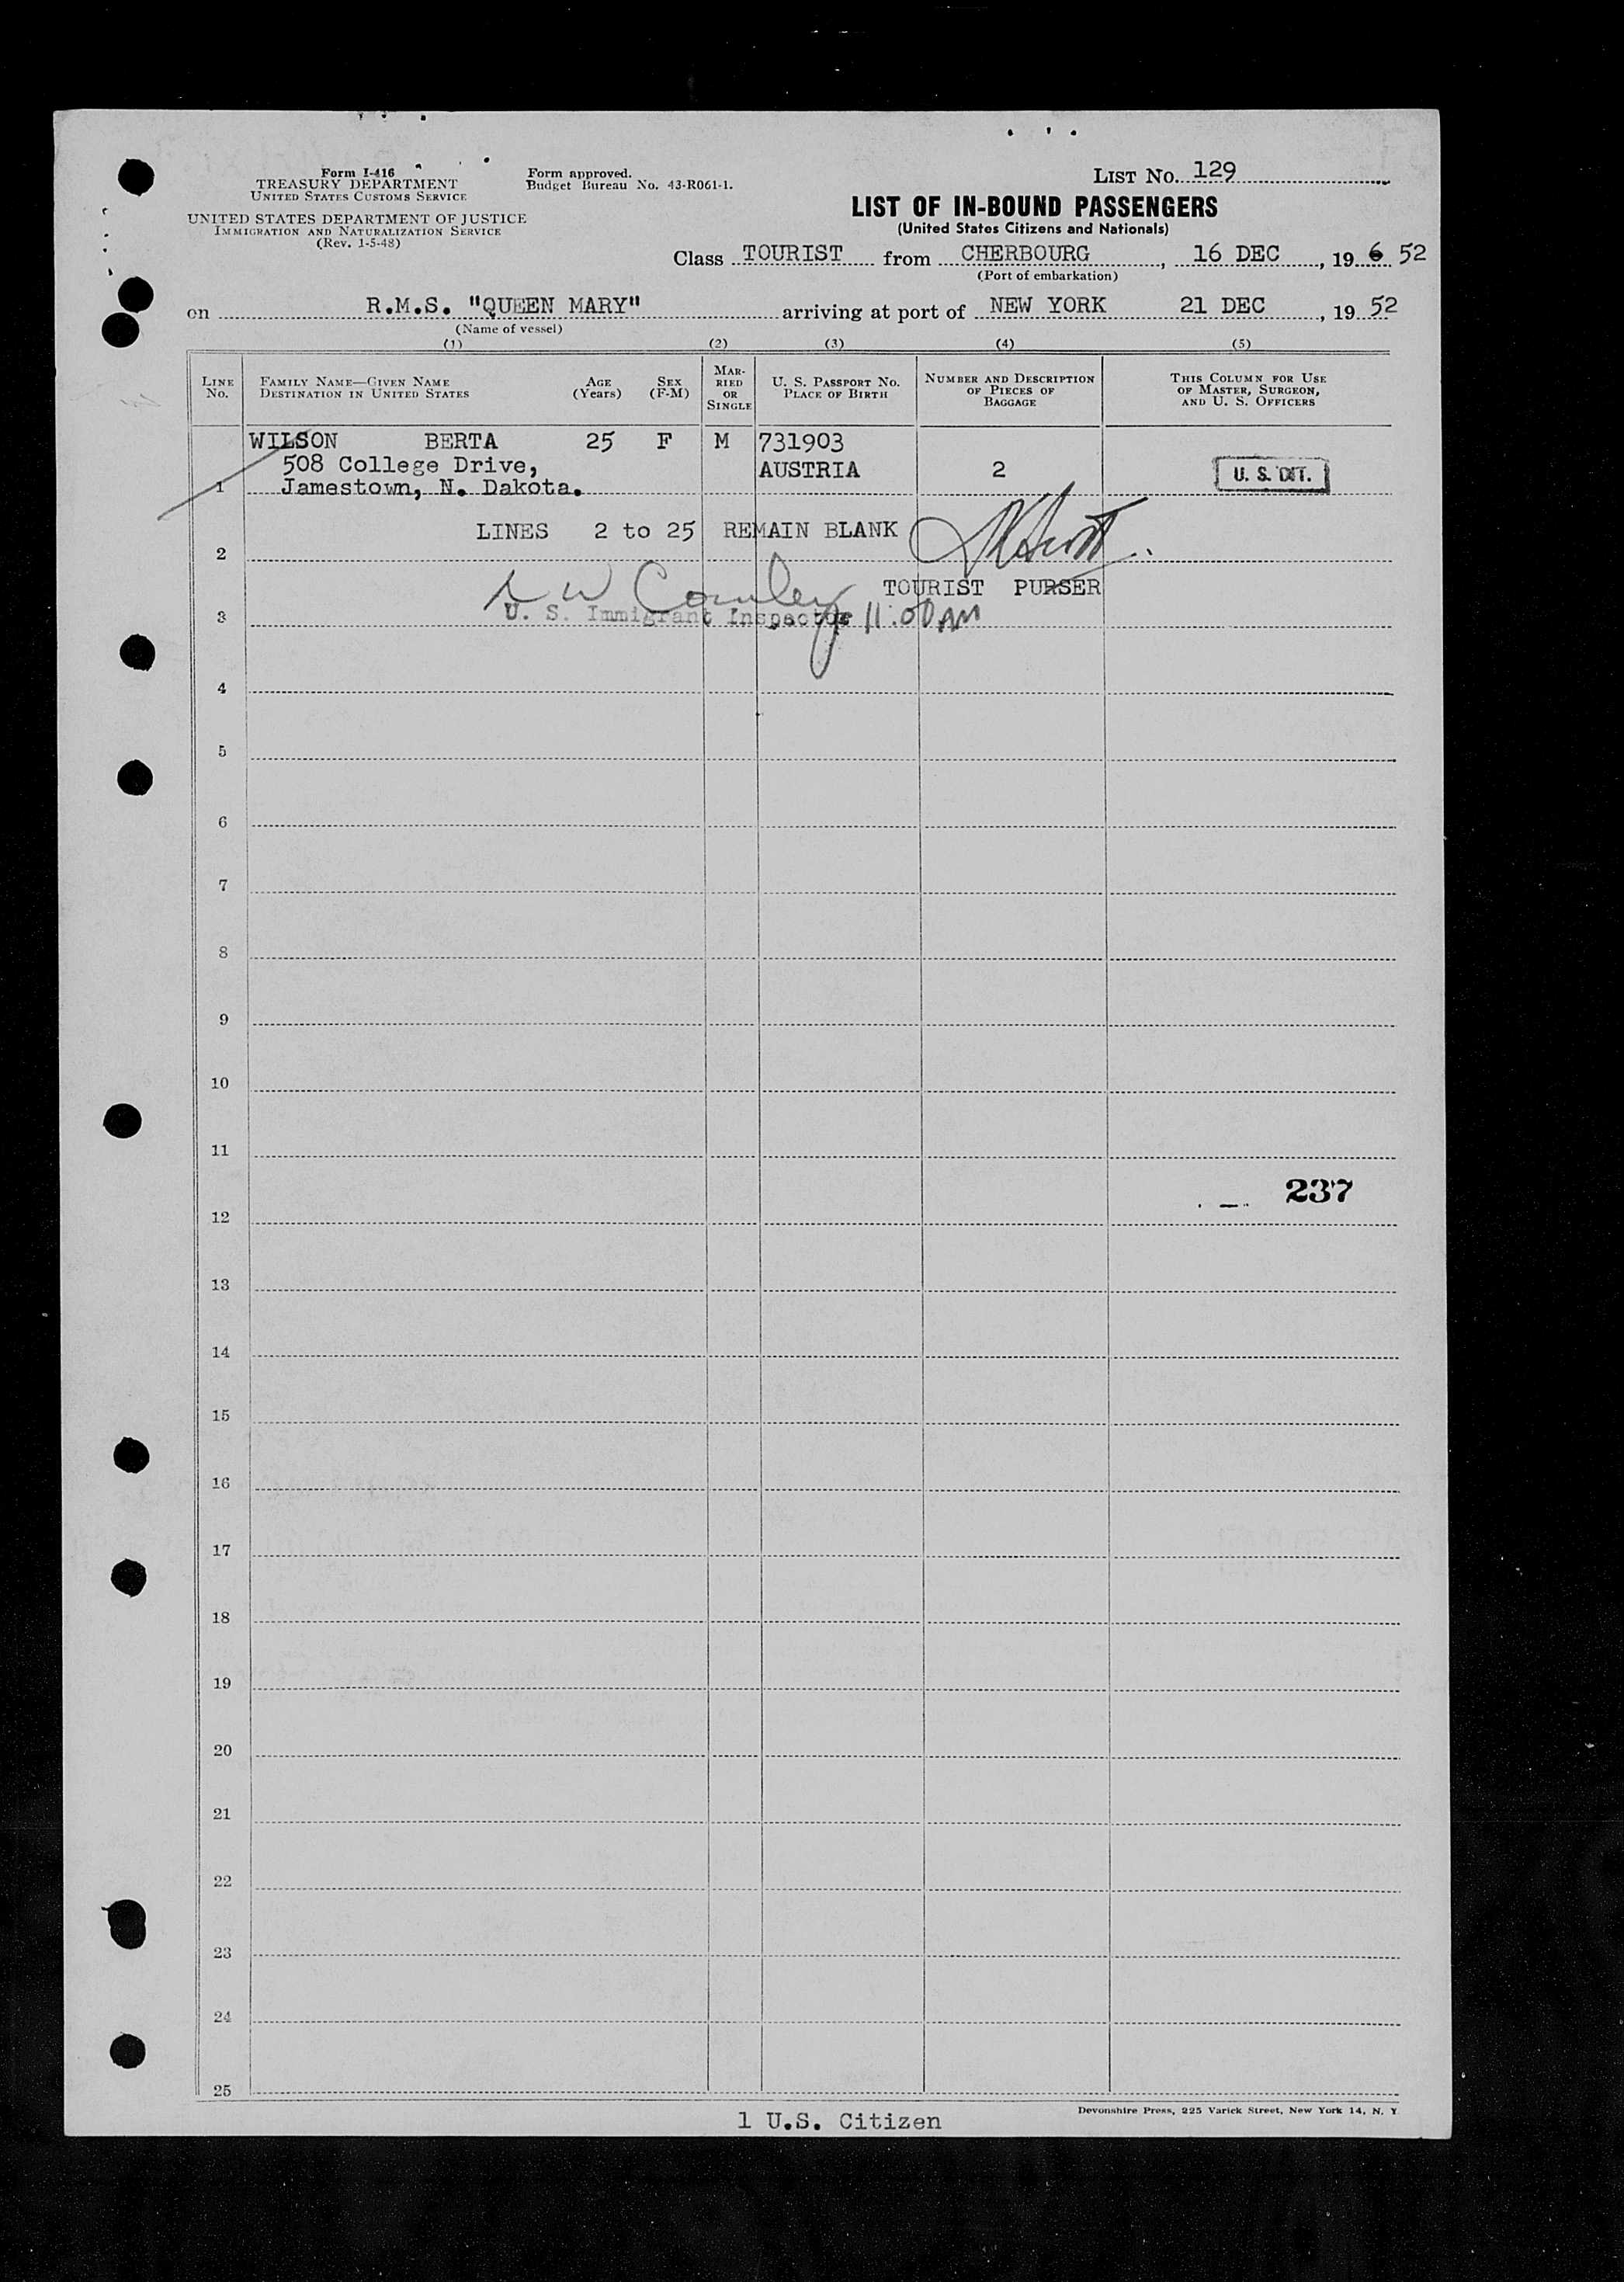 Form I-416
TREASURY DEPARTMENT
UNITED STATES CUSTOMS SERVICE
UNITED STATES DEPARTMENT OF JUSTICE
IMMIGRATION AND NATURALIZATION SERVICE
(Rev. 1-5-48)
Form approved.
Budget Bureau No. 43-R061-1.
LIST NO. 129
LIST OF IN-BOUND PASSENGERS
(United States Citizens and Nationals)
Class TOURIST from CHERBOURG, 16 DEC, 19 6 52
(Port of embarkation)
on R.M.S. "QUEEN MARY" arriving at port of NEW YORK 21 DEC, 19 52
(Name of vessel)
(1) (2) (3) (4) (5)
LINE NO.
FAMILY NAME—GIVEN NAME
DESTINATION IN UNITED STATES
AGE (Years)
SEX (F-M)
MARRIED OR SINGLE
U. S. PASSPORT NO.
PLACE OF BIRTH
NUMBER AND DESCRIPTION OF PIECES OF BAGGAGE
THIS COLUMN FOR USE OF MASTER, SURGEON, AND U. S. OFFICERS
WILSON BERTA 25 F M 731903
508 College Drive, AUSTRIA 2 U. S. CIT.
1 Jamestown, N. Dakota.
LINES 2 to 25 REMAIN BLANK
2
TOURIST PURSER
3 U. S. Immigrant Inspector 11:00 AM
4
5
6
7
8
9
10
11
237
12
13
14
15
16
17
18
19
20
21
22
23
24
25
Devonshire Press, 225 Varick Street, New York 14, N. Y.
1 U.S. Citizen